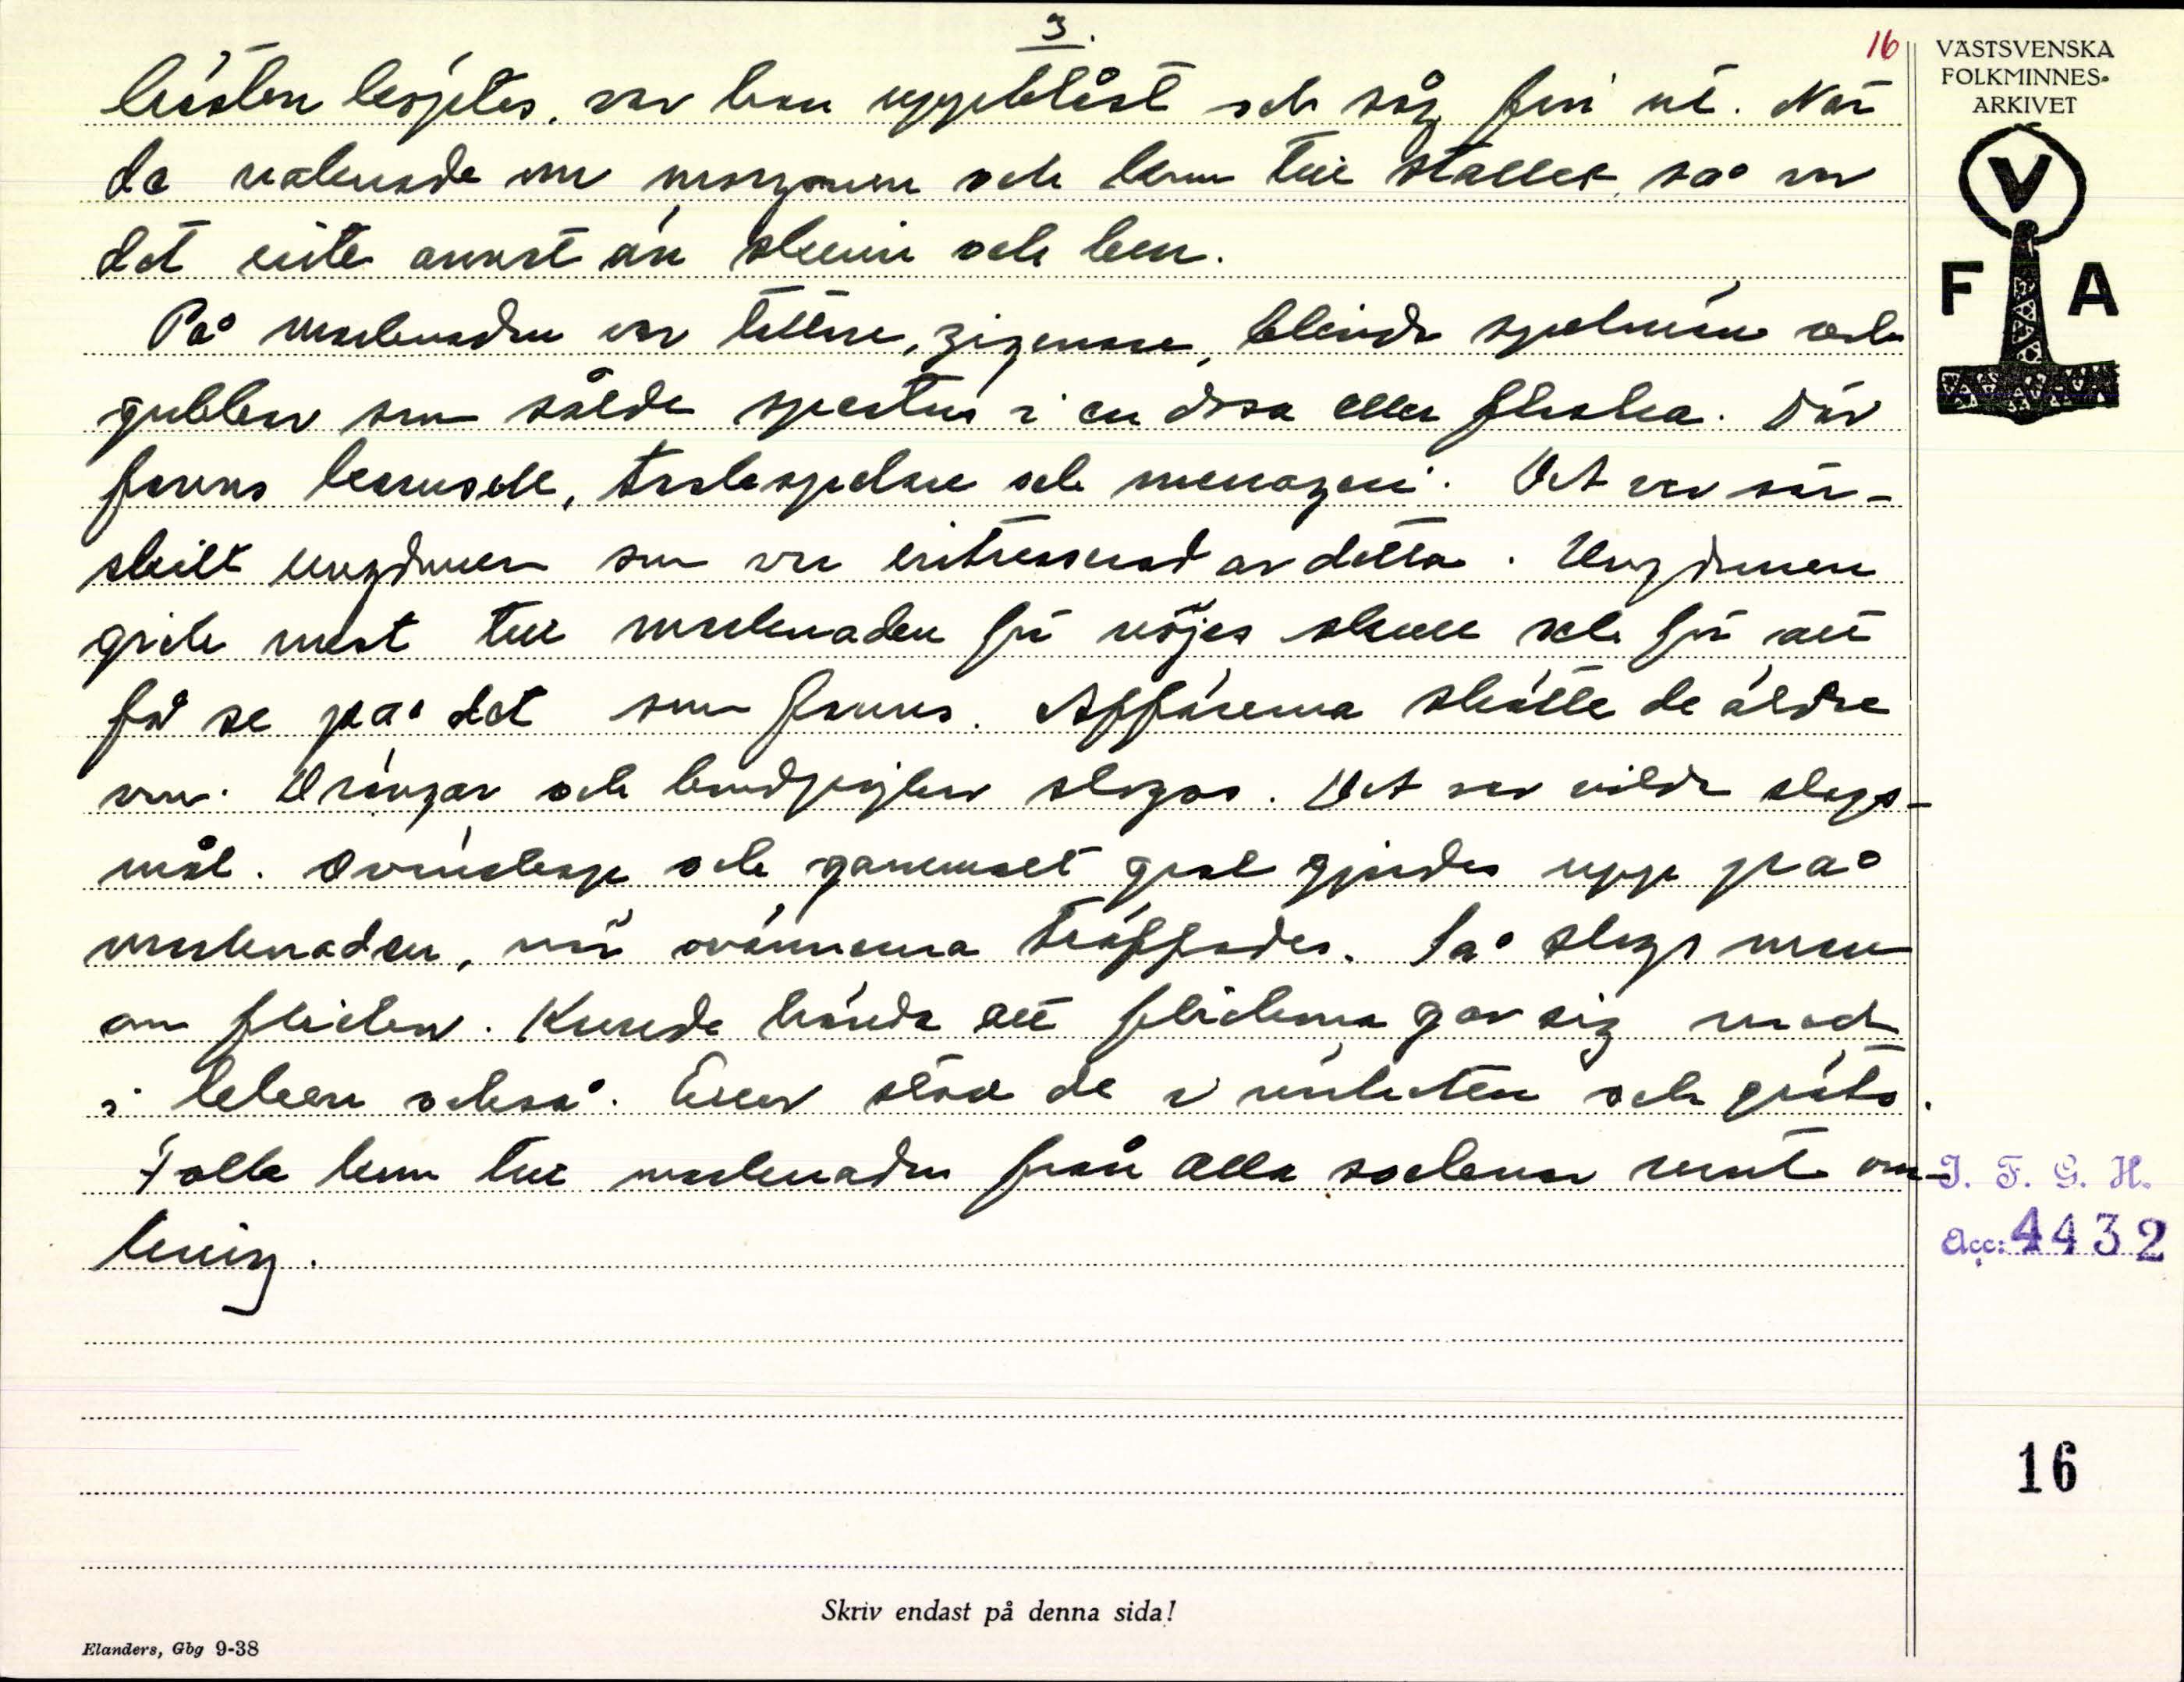 3.
16
hästen köptes, var han uppblåst och såg fin ut. När
de vaknade om morgonen och kom till stallet, så var
det inte annat än skinn och ben.
På marknaden var tattare, zigenare, blinda spelmän och
gubbar som sålde spektus i en dosa eller flaska. Där
fanns karusell, trollspelare och menageri. Det var sär-
skilt ungdomen som var intresserad av detta. Ungdomen
gick mest till marknaden för nöjes skull och för att
få se på det som fanns. Affärerna skötte de äldre
om. Drängar och bondpojkar slogos. Det var vilda slags-
mål. Ovänskap och gammalt groll gjordes upp på
marknaden, när ovännerna träffades. Så slogs man
om flickor. Kunde hända att flickorna gav sig med
i leken också. Eller stod de i närheten och gräto.
Folk kom till marknaden från alla socknar runt om-
kring.
VÄSTSVENSKA
FOLKMINNES-
ARKIVET
V
F A
I. F. G. H.
Acc: 4432
16
Skriv endast på denna sida!
Elanders, Gbg 9-38